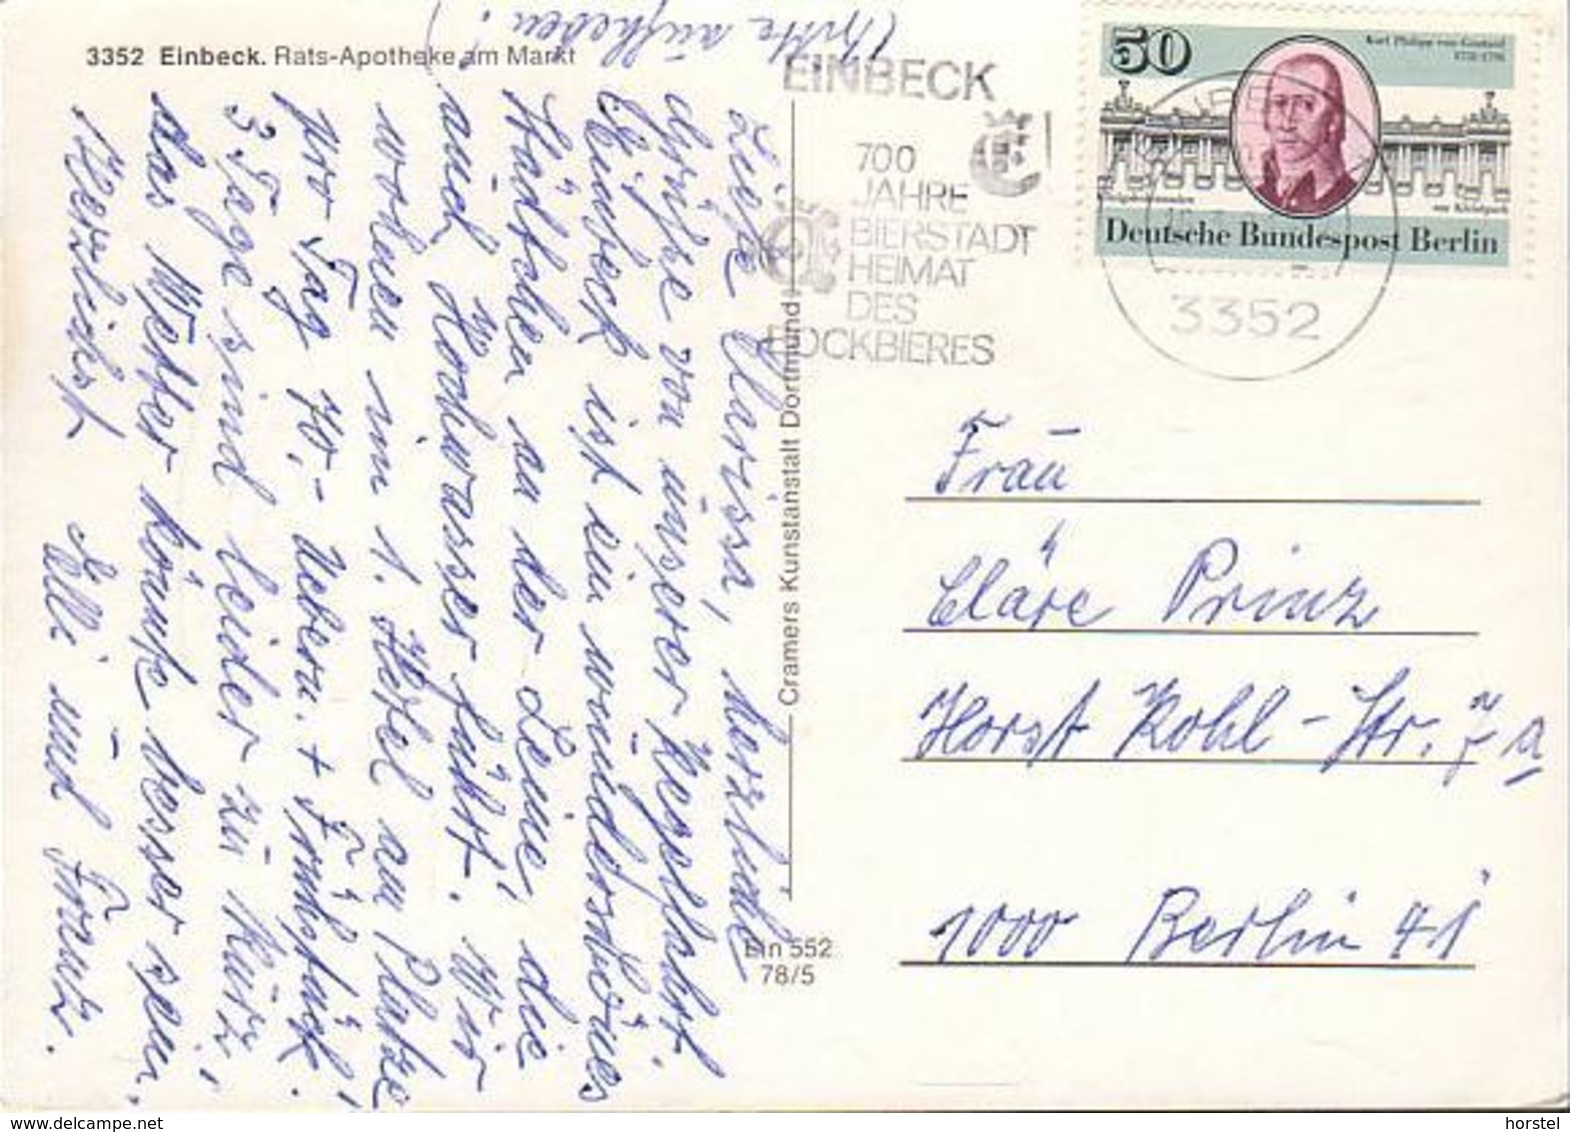 3352 Einbeck. Rats-Apotheke am Markt
(bitte aufheben!)
EINBECK
700
JAHRE
BIERSTADT
HEIMAT
DES
BOCKBIERES
50
Karl Philipp von Gontard
Deutsche Bundespost Berlin
3352
Liebe Clarissa, herzliche
Grüße von unserer Kegelfahrt.
Einbeck ist ein wunderschönes
Städtchen an der Leine, die
auch Hochwasser führt. Wir
wohnen im 1. Hotel am Platze
pro Tag 70,- Übern. + Frühstück.
3 Tage sind leider zu kurz,
das Wetter könnte besser sein.
Herzlichst Elli und Franz.
Cramers Kunstanstalt Dortmund
Ein 552
78/5
Frau
Cläre Prinz
Horst Kohl-Str. 7 a
1000 Berlin 41
horstel